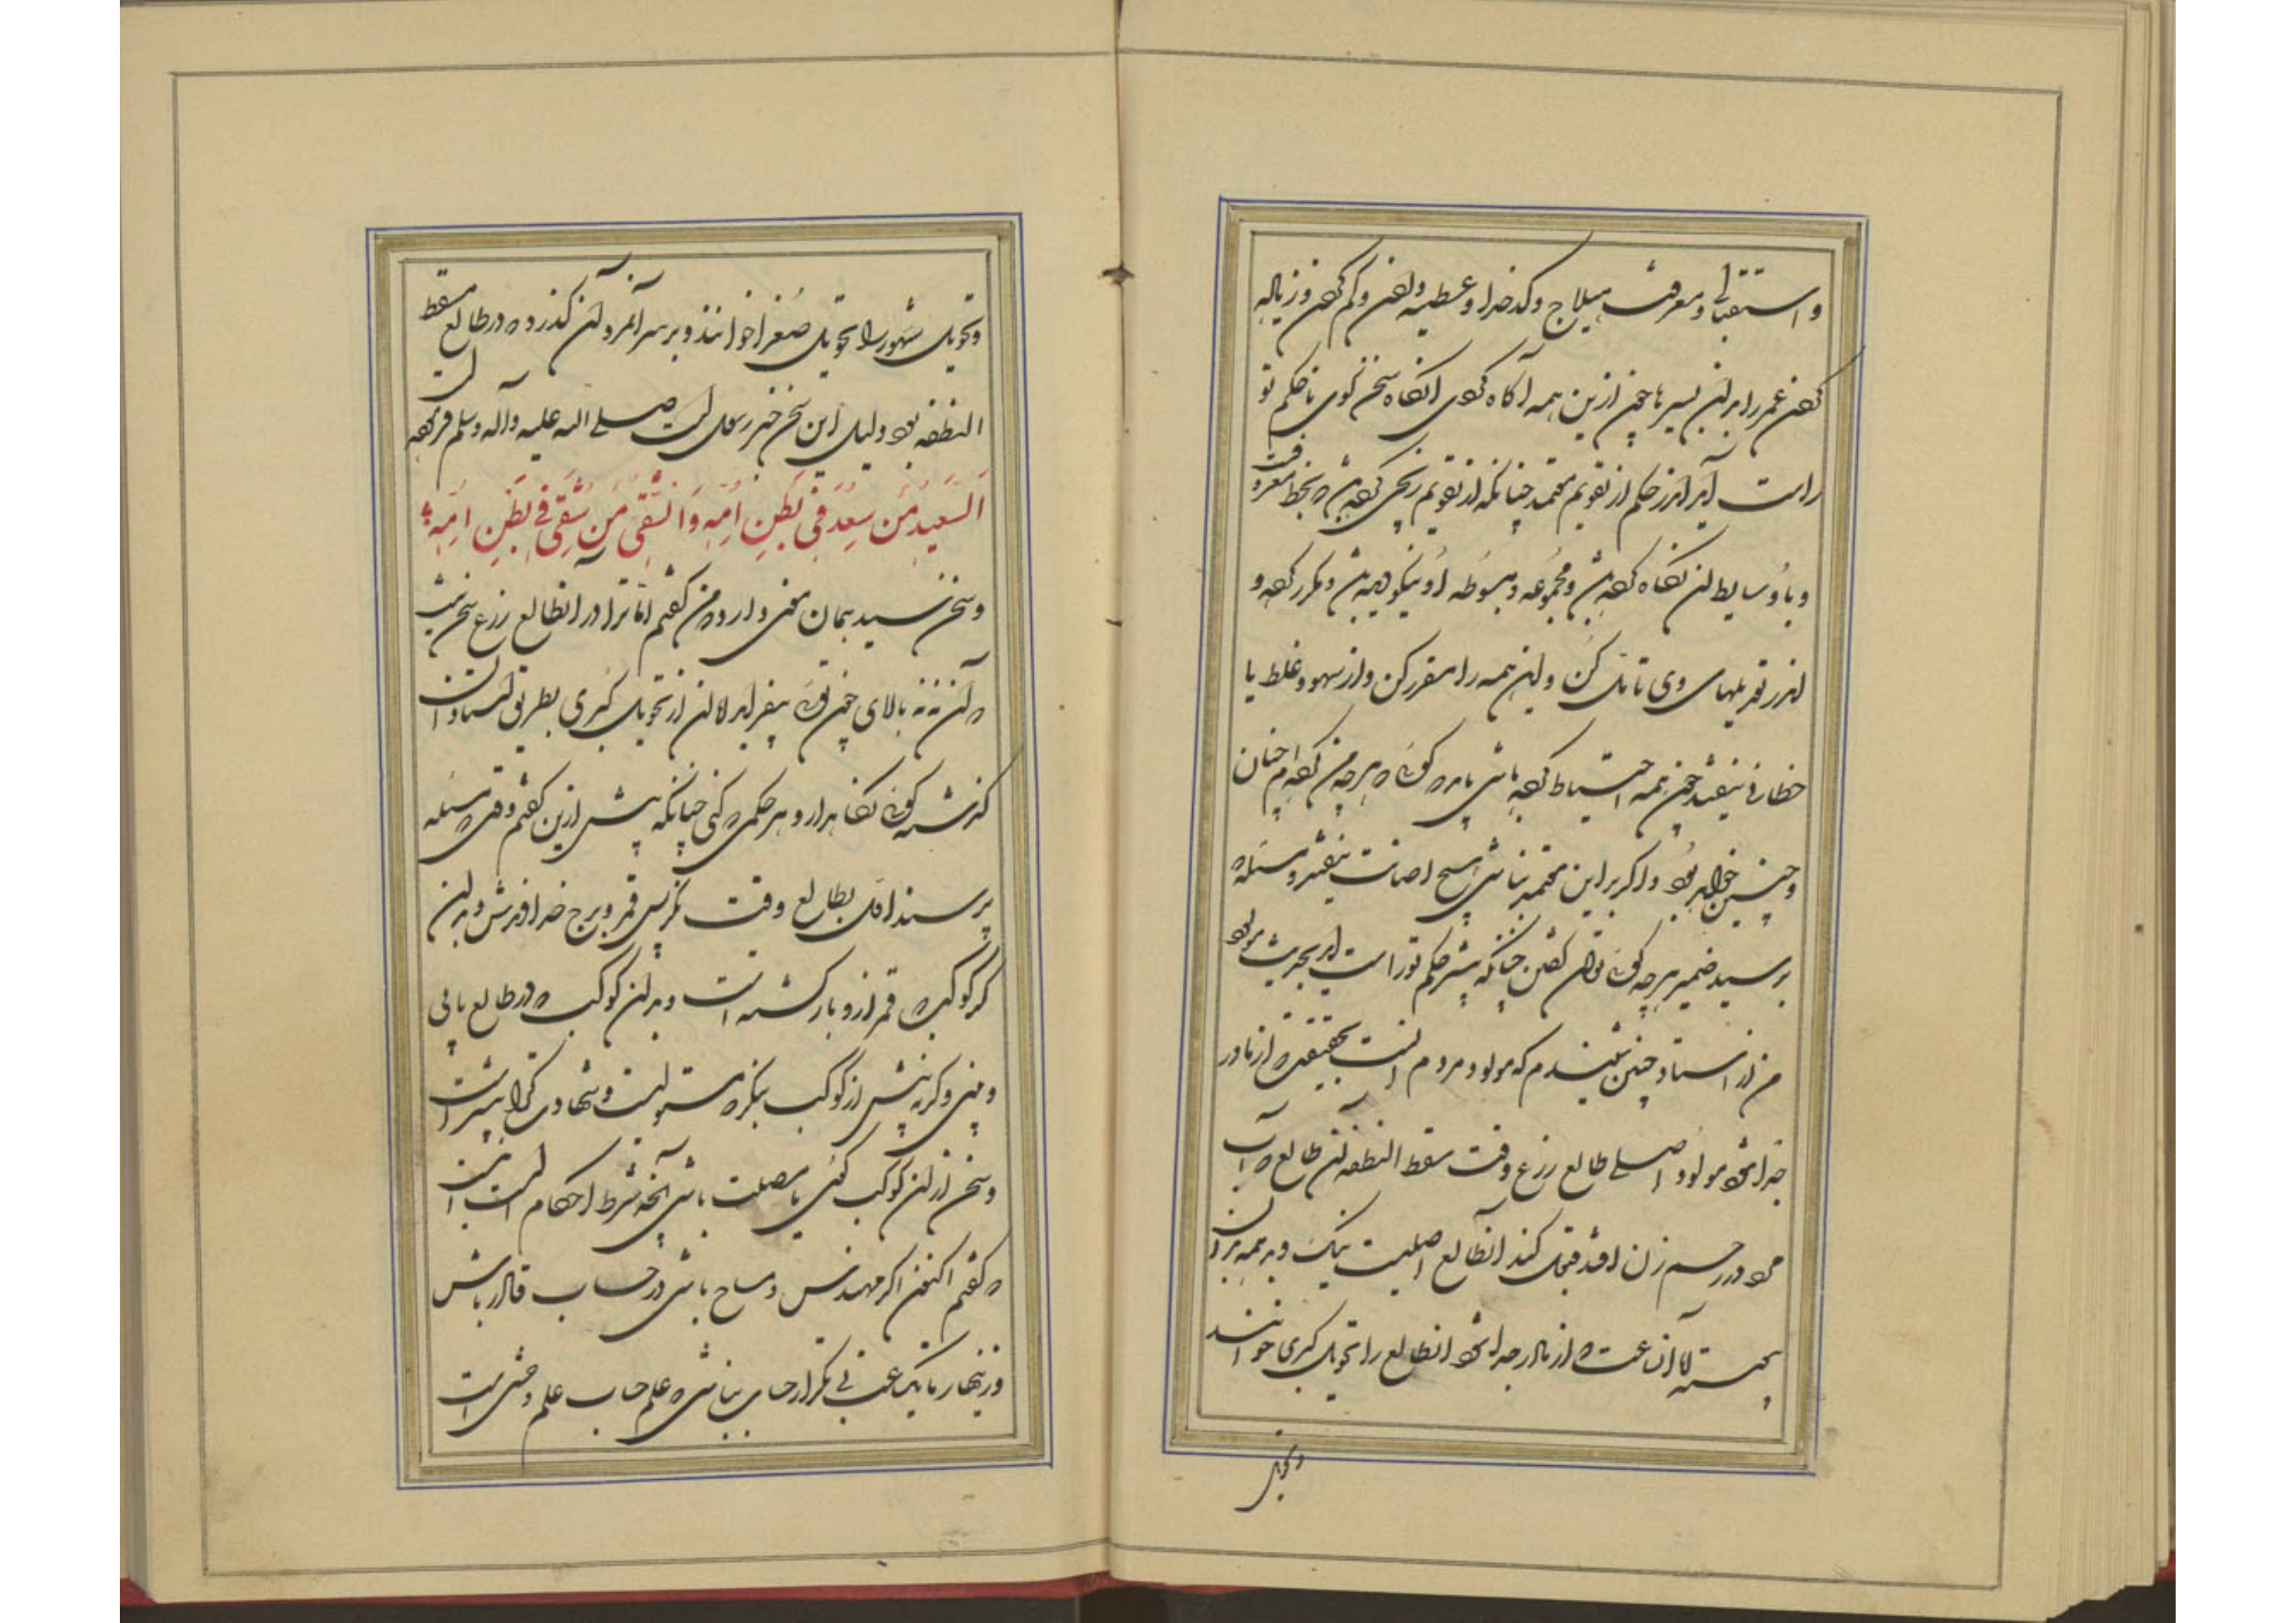 و استقبالی و معرفت هیلاج و کدخدا و عطیه دادن و کم کردن و زیاده
کردن عمر را بدان تسییرها چون ازین همه آگاه کردی آنگاه سخن گوی تا حکم تو
راست آید اندر حکم از تقویم معتمد چنانکه از تقویم زیجی کرده باشی که بخط معروف
و با وسایط آن نگاه کرده باشی و مجموعه و مبسوطه او نیکو دیده باشی و مکرر کرده و
اندر تعدیلهای وی تأمل کن و این همه را مقرر کن و از سهو و غلط تا
خطائی نیفتد چون همه احتیاط کرده باشی باید گفت که هر چه من کرده‌ام چنان
و چنین خواهد بود و اگر بر این معتمد نباشی هیچ اصابت نیفتد و مسئله که
پرسید ضمیر هر چه گوئی توان گفتن چنانکه بیشتر حکم تو راست آید بحدیث مولود
من از استاد چنین شنیدم که مولود مردم نه آنست بحقیقت که از مادر
جدا شود مولود اصلی طالع زرع وقت مسقط النطفه آن طالع که آب
مرد در رحم زن افتد قبول کند آن طالع اصلیست نیک و بد همه بدان
پیوسته اما آن ساعت که از مادر جدا شود آن طالع را تحویل کبری خوانند
و تحویل
و تحویل شهور را تحویل صغرا خوانند و بر سر آدمی آن گذرد که در طالع مسقط
النطفه بود و دلیل این سخن خبر رسول است صلی الله علیه و آله و سلم فرموده است
اَلسَّعیدُ مَن سَعِدَ فی بَطنِ اُمِّه وَ الشَّقی مَن شَقِیَ فی بَطنِ اُمِّه
و سخن سید همان معنی دارد که من گفتم اما ترا در آن طالع زرع سخن نیست
که آن نه بالای چون توئی بیفزاید الا آن از تحویل کبری بطریق استادان
گذشته گوی نگاه بدار و هر حکمی که کنی چنانکه پیش ازین گفتم وقتی که مسئله
پرسند اول بطالع وقت نگر پس قمر و برج خداوندش و بدان
کوکب که قمر از و بازگشته است و بدان کوکب که در طالع یابی
و بینی و گرنه پیش از کوکب بنگر که مستولیست و شهادت کرا بیشتر است
و سخن از آن کوکب گوی تا مصیب باشی آنچه شرط احکام است اینست
که گفتم اکنون اگر مهندس و مساح باشی در حساب قادر باش
و زینهار تا یک ساعت بی تکرار حساب نباشی که علم حساب علم وحشی است